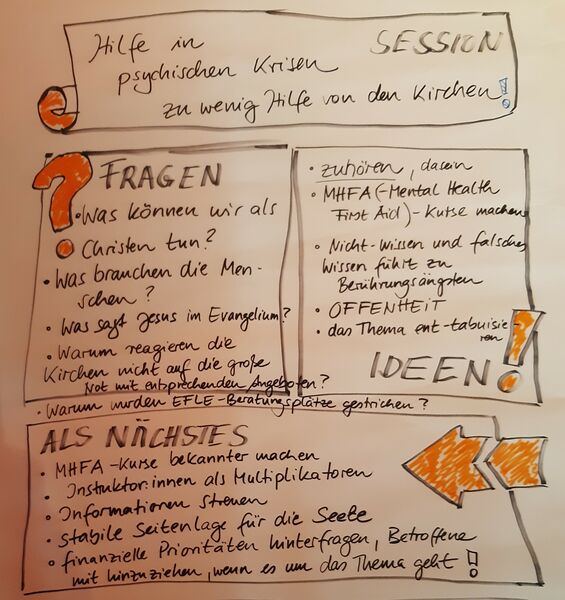 SESSION
Hilfe in
psychischen Krisen
zu wenig Hilfe von den Kirchen!
? FRAGEN
• Was können wir als
Christen tun?
• Was brauchen die Men-
schen?
• Was sagt Jesus im Evangelium?
• Warum reagieren die
Kirchen nicht auf die große
Not mit entsprechenden Angeboten?
• Warum wurden EFLE-Beratungsplätze gestrichen?
• zuhören, dasein
• MHFA (-Mental Health
First Aid) - Kurse machen
• Nicht-Wissen und falsches
Wissen führt zu
Berührungsängsten
• OFFENHEIT
• das Thema ent-tabuisie
ren
IDEEN!
ALS NÄCHSTES
• MHFA-Kurse bekannter machen
• Instruktor:innen als Multiplikatoren
• Informationen streuen
• stabile Seitenlage für die Seele
• finanzielle Prioritäten hinterfragen, Betroffene
mit hinzuziehen, wenn es um das Thema geht!